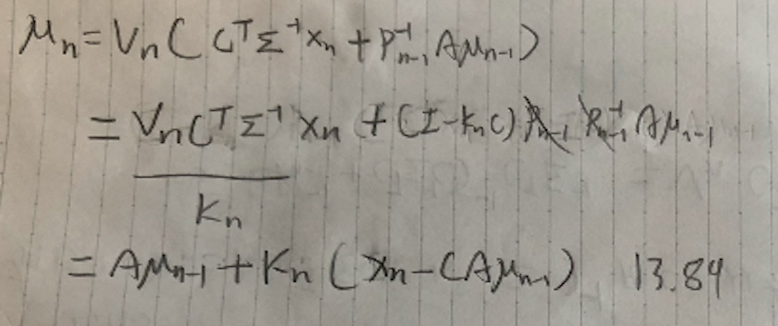 μₙ = Vₙ ( CᵀΣ⁻¹xₙ + Pₙ₋₁⁻¹ Aμₙ₋₁ )
= VₙCᵀΣ⁻¹ xₙ + (I - KₙC) Pₙ₋₁ Pₙ₋₁⁻¹ Aμₙ₋₁
Kₙ
= Aμₙ₋₁ + Kₙ ( xₙ - CAμₙ₋₁ ) 13.84